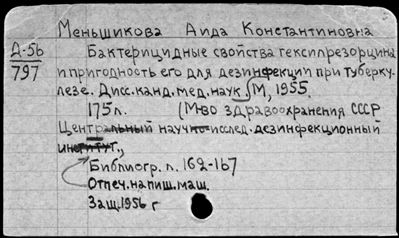 Меньшикова Аида Константиновна
Д-56
797
Бактерицидные свойства гексилрезорцина
и пригодность его для дезинфекции при туберку-
лезе. Дисс. канд. мед. наук М, 1955.
175 л. (М-во здравоохранения СССР
Центральный научно-исслед. дезинфекционный
институт.,
Библиогр. л. 162-167
Отпеч. на пиш. маш.
Защ. 1956 г